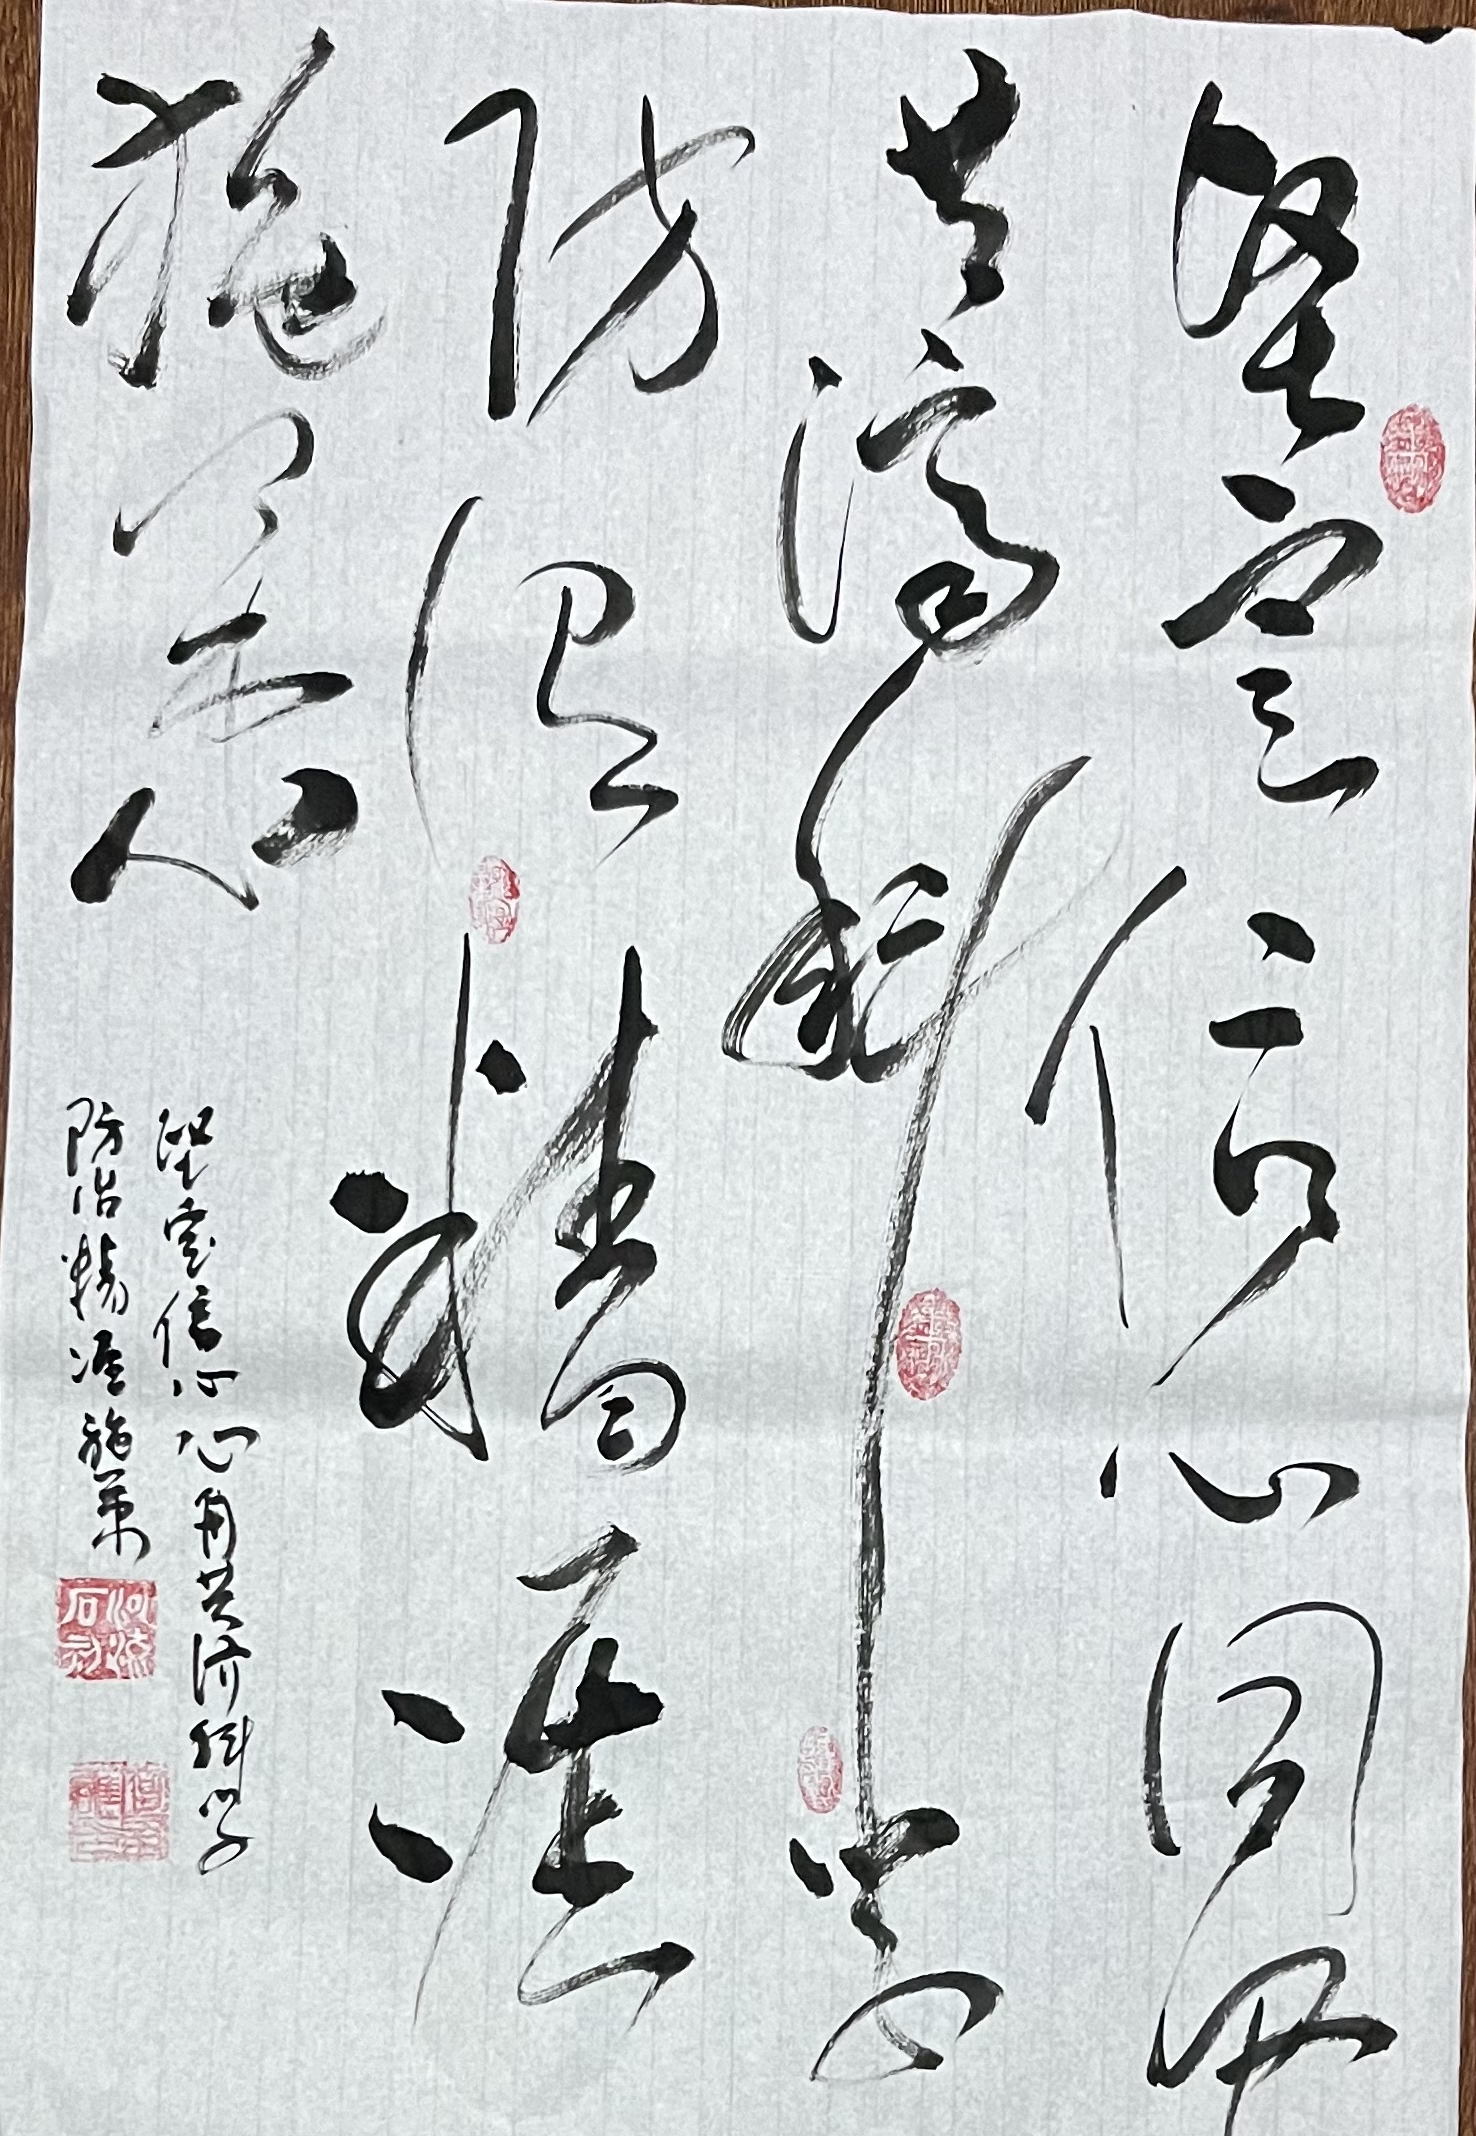 坚定信心同舟
共濟科学
防治精准
施策
坚定信心同舟共济科学
防治精准施策